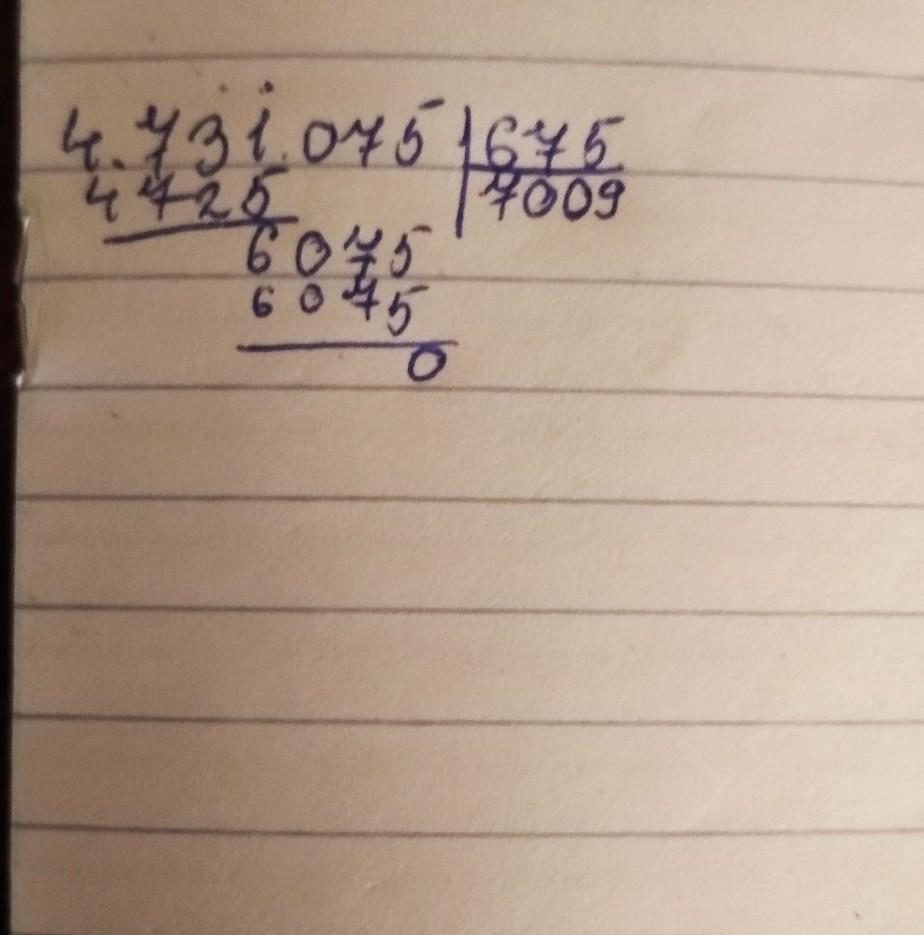 4.731.075 | 675
4725 | 7009
6075
6075
0